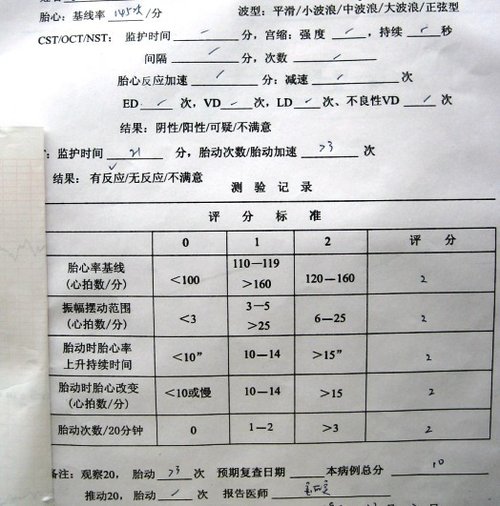 胎心：基线率 145次 /分 波型：平滑/小波浪/中波浪/大波浪/正弦型
CST/OCT/NST： 监护时间 ✓ 分，宫缩：强 度 ✓ ，持续 ✓ 秒
间隔 ✓ 分，次数 ✓
胎心反应加速 ✓ 分：减速 ✓ 次
ED ✓ 次，VD ✓ 次，LD ✓ 次、不良性VD ✓ 次
结果：阴性/阳性/可疑/不满意
：监护时间 21 分，胎动次数/胎动加速 >3 次
结果： 有反应/无反应/不满意
测 验 记 录
评 分 标 准
0 1 2 评 分
胎心率基线 (心拍数/分) <100 110—119 >160 120—160 2
振幅摆动范围 (心拍数/分) <3 3—5 >25 6—25 2
胎动时胎心率 上升持续时间 <10” 10—14 >15” 2
胎动时胎心改变 (心拍数/分) <10或慢 10—14 >15 2
胎动次数/20分钟 0 1—2 >3 2
备注：观察20， 胎动 >3 次 预期复查日期 本病例总分 10
推动20， 胎动 ✓ 次 报告医师